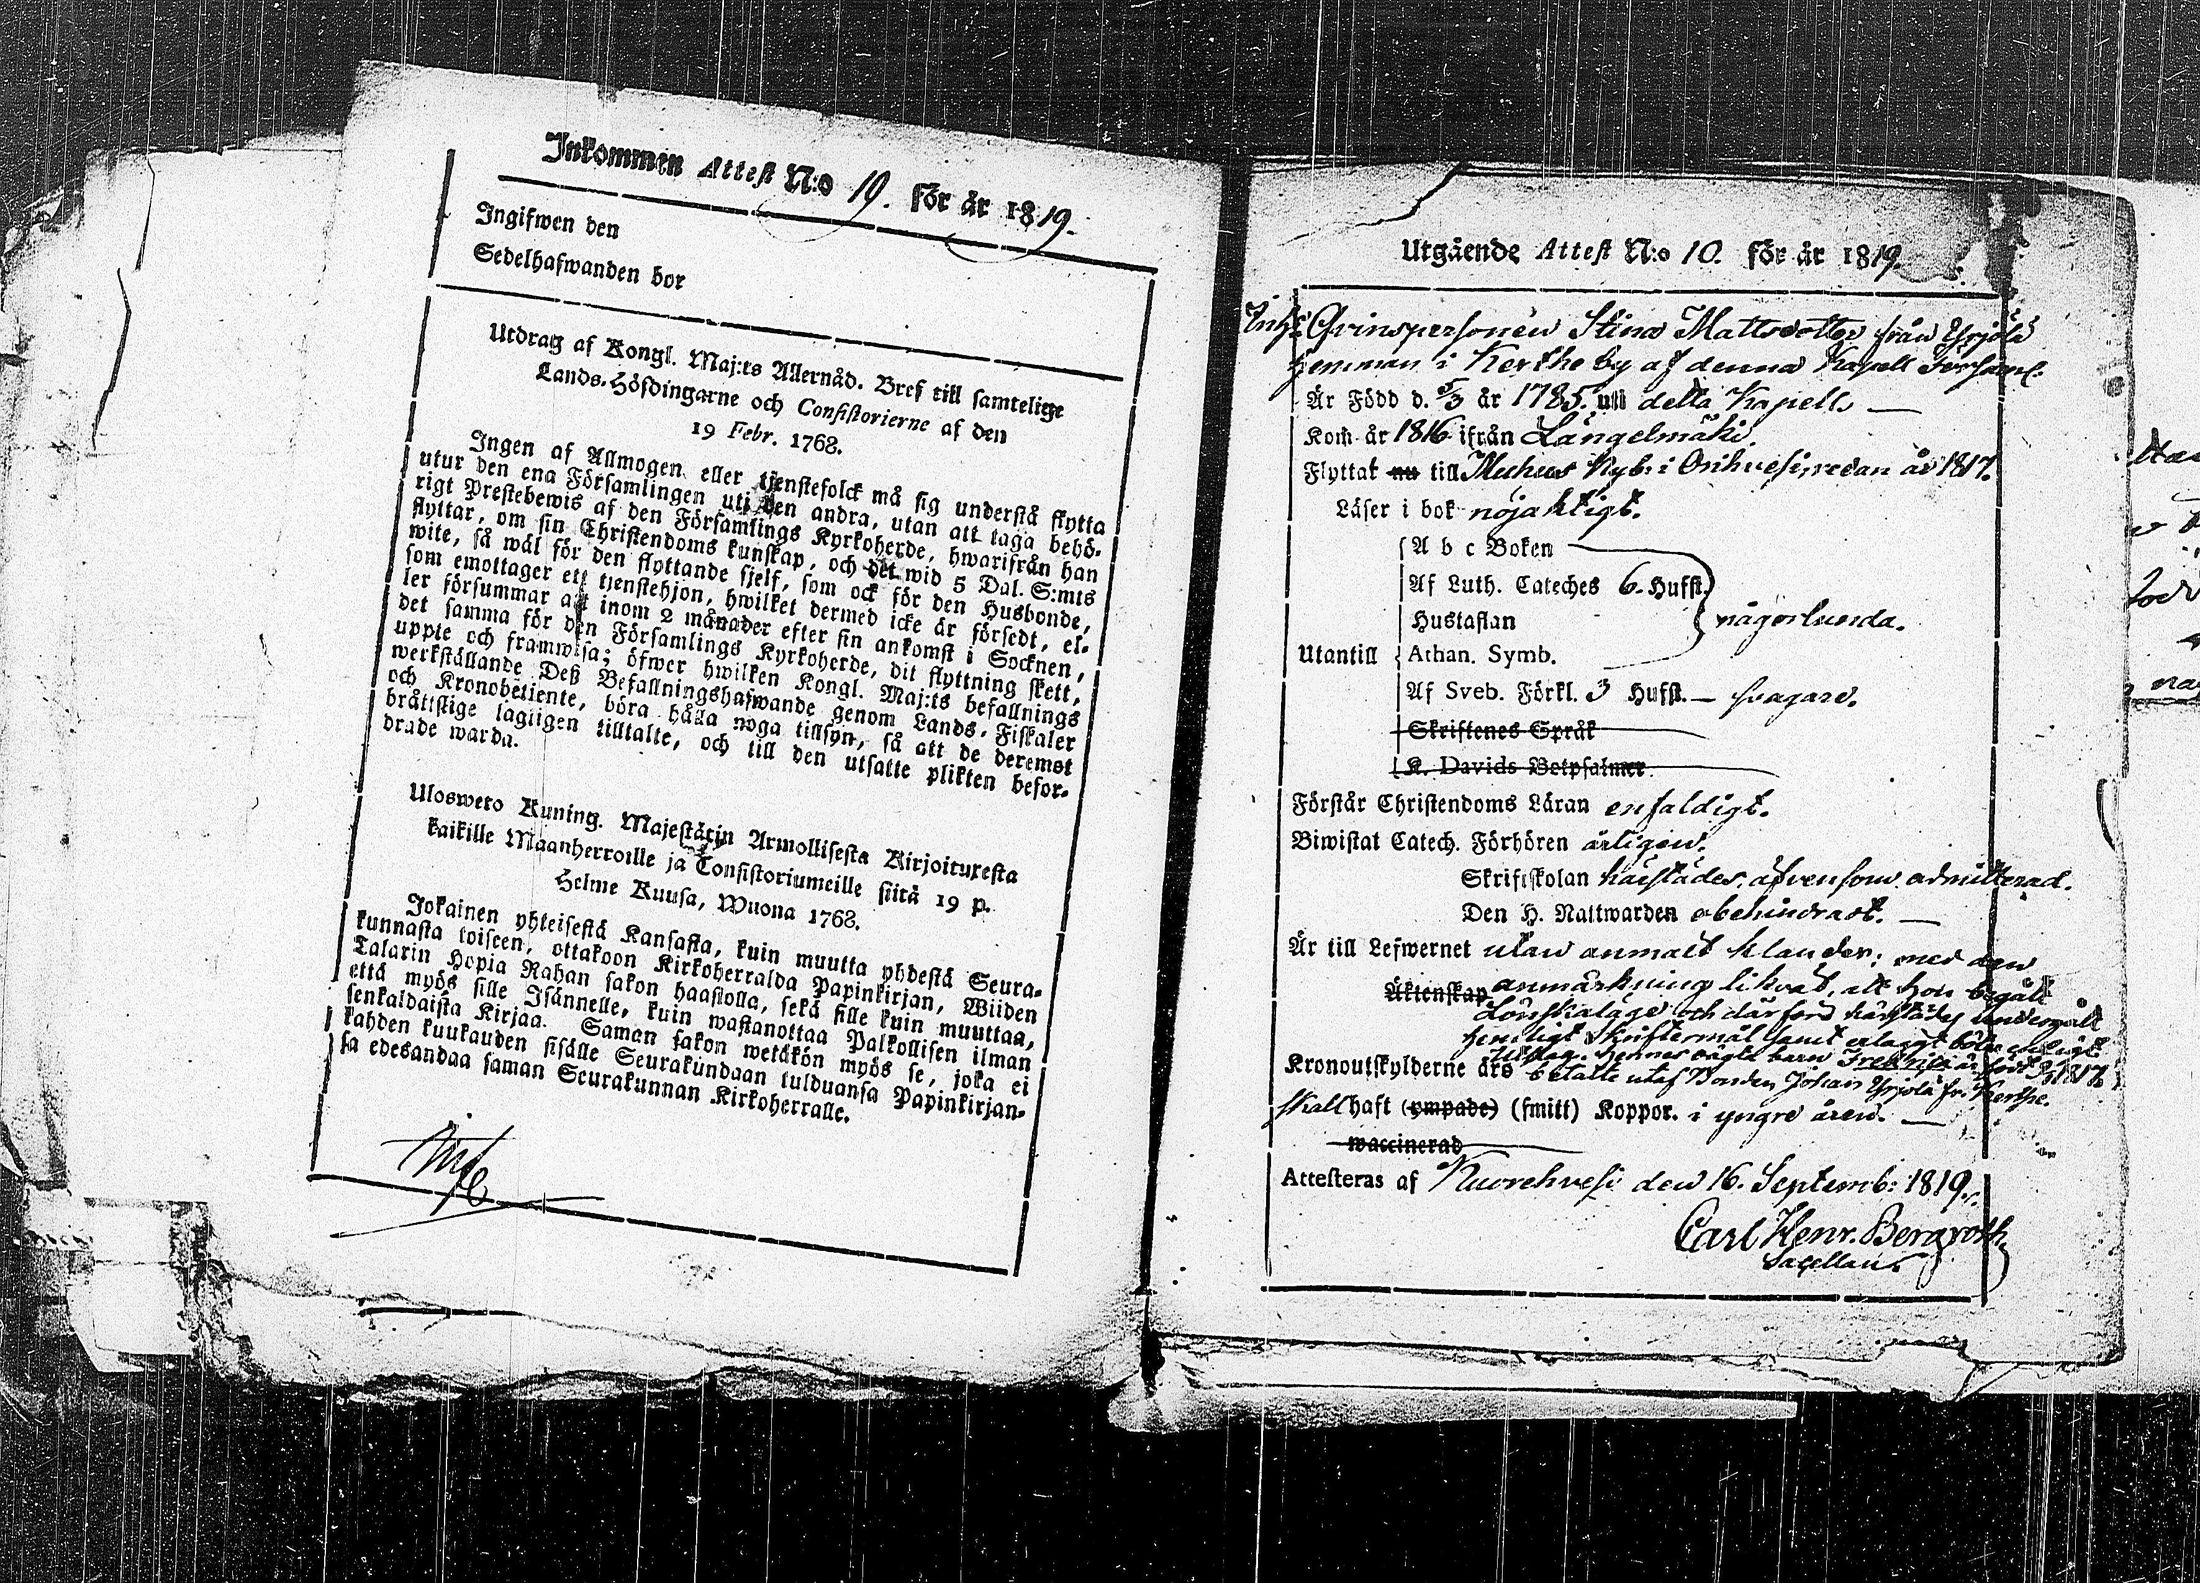 Inkommen Attest N:o 19. för år 1819.
Ingifwen den
Sedelhafwanden bor
Utdrag af Kongl. Maj:ts Allernåd. Bref till samtelige
Lands-Höfdingarne och Consistorierne af den
19 Febr. 1768.
Ingen af Allmogen eller tjenstefolck må sig understå flytta
utur den ena Församlingen uti den andra, utan att taga behö-
rigt Prestebewis af den Församlings Kyrkoherde, hwarifrån han
flyttar, om sin Christendoms kunskap, och det wid 5 Dal. S:mts
wite, så wäl för den flyttande sjelf, som ock för den Husbonde,
som emottager ett tjenstehjon, hwilket dermed icke är försedt, el-
ler försummar att inom 2 månader efter sin ankomst i Socknen,
det samma för den Församlings Kyrkoherde, dit flyttning skett,
uppte och framwisa; öfwer hwilken Kongl. Maj:ts befallnings
werkställande Deß Befallningshafwande genom Lands-Fiskaler
och Kronobetiente, böra hålla noga tillsyn, så att de deremot
bråttslige lagligen tilltalte, och till den utsatte plikten befor-
drade warda.
Ulosweto Kuning. Majestätin Armollisesta Kirjoituxesta
kaikille Maanherroille ja Consistoriumeille siitä 19 p.
Helme Kuusa, Wuona 1768.
Jokainen yhteisestä Kansasta, kuin muutta yhdestä Seura-
kunnasta toiseen, ottakoon Kirkoherralda Papinkirjan, Wiiden
Talarin Hopia Rahan sakon haastolla, sekä sille kuin muuttaa,
että myös sille Isännelle, kuin wastanottaa Palkollisen ilman
senkaldaista Kirjaa. Saman sakon wetäkön myös se, joka ei
kahden kuukauden sisälle Seurakundaan tulduansa Papinkirjan-
sa edesandaa saman Seurakunnan Kirkoherralle.
Utgående Attest N:o 10. för år 1819.
Inh: Qvinspersonen Stina Mattsdotter från Yrjölä
hemman i Kerthe by af denna Kapell Församl:
Är Född d. 5/3 år 1785. uti detta Kapell. —
Kom år 1816 ifrån Längelmäki.
Flyttat nu till Meheus Nyb: i Orihvesi, redan år 1817.
Läser i bok nöjaktigt.
A b c Boken
Af Luth. Cateches 6. Hufst.
Hustaflan någorlunda.
Utantill Athan. Symb.
Af Sveb. Förkl. 3 Hufst. — svagare.
Skriftenes Språk
K. Davids Botpsalmer
Förstår Christendoms Läran enfaldigt.
Biwistat Catech. Förhören årligen.
Skriftskolan härstädes, äfvensom admitterad.
Den H. Nattwarden obehindradt. —
Är till Lefwernet utan anmält klander; med den
Äktenskap anmärkning likväl, att hon begått
Lönskaläge och därföre härstädes undergått
hemligt skriftermål samt erlaggt böter enligt
Utslag. Hennes oägta barn Fredrica är född 1817.
Kronoutskylderne äro betalte utaf Bonden Johan Yrjölä fr. Kerthe.
skall haft (ympade) (smitt) Koppor. i yngre åren. —
waccinerad
Attesteras af Kuorehvesi den 16. Septemb: 1819.
Carl Henr. Bergroth.
Sacellan.